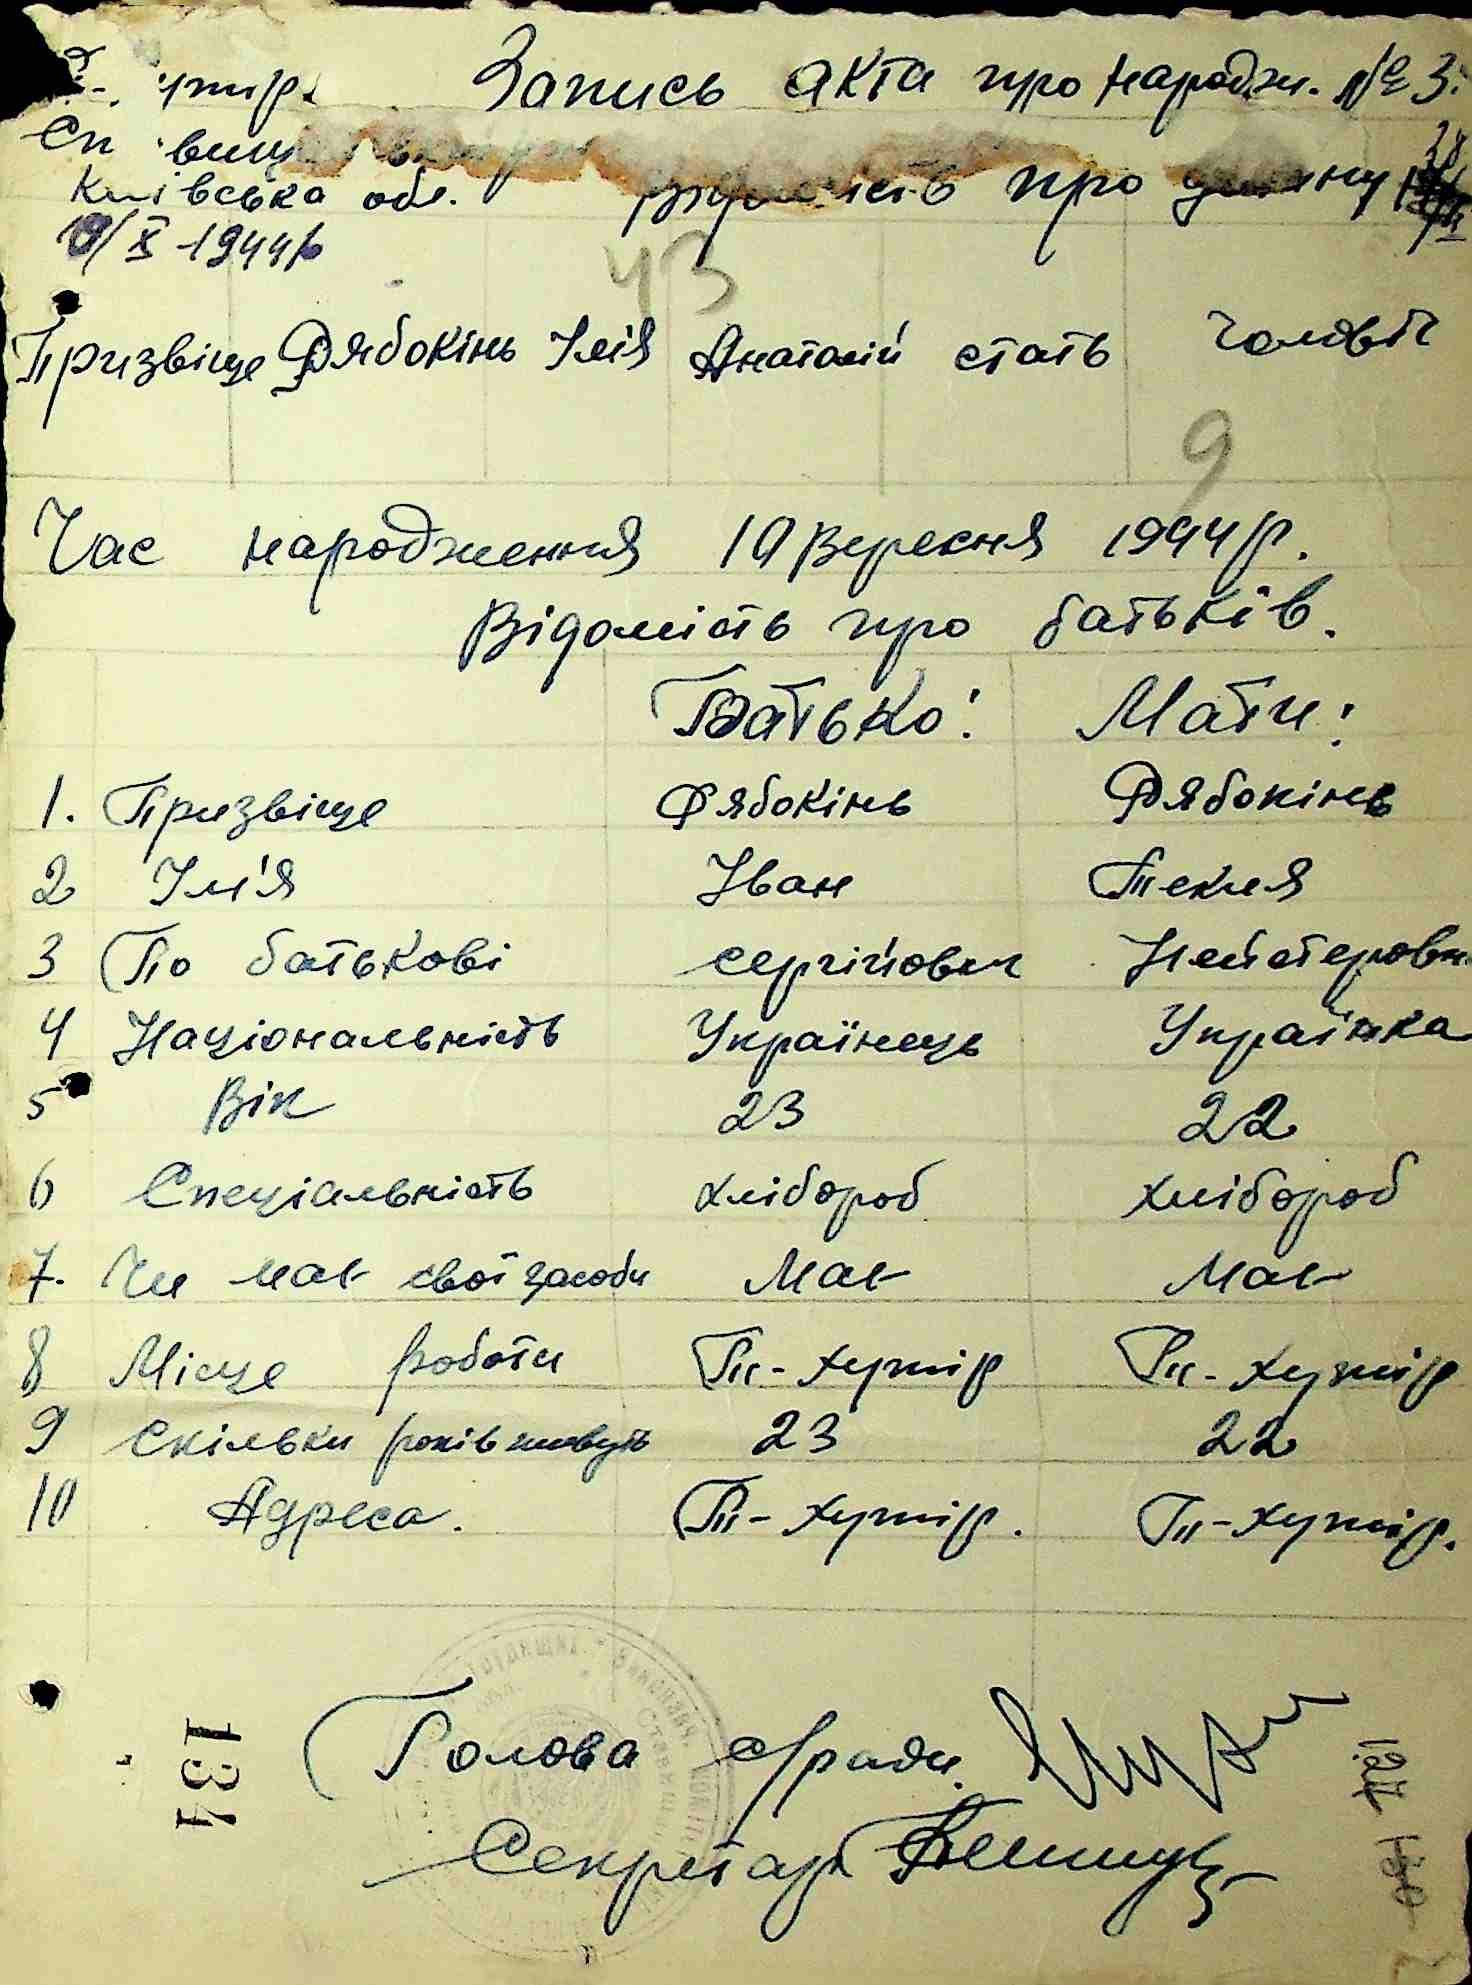 Запись акта про народжн. № 3.
Київська обл. Відомість про дитину
10/X 1944р
43
Призвіще Рябокінь Імія Анатолій стать чоловіч
9
Час народження 10 Вересня 1944р.
Відомість про батьків.
Батько: Мати:
1. Призвіще Рябокінь Рябокінь
2 Ім'я Іван Текля
3 По батькові Сергійович
4 Національність Українець Українка
5 Вік 23 22
6 Спеціальність хлібороб хлібороб
7. Чи має свої засоби Має Має
8 Місце роботи П-хутір П-хутір
9 Скільки років живуть 23 22
10 Адреса. П-хутір. П-хутір.
Голова с/ради
Секретар
131
127
130